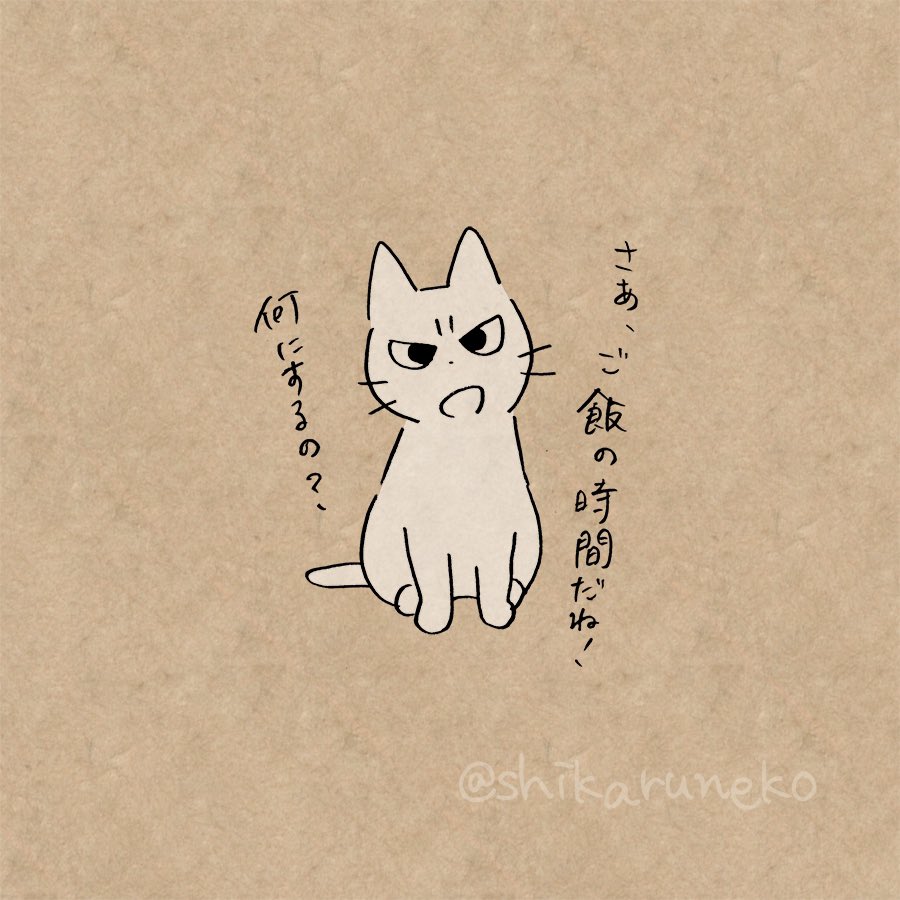 さあ、ご飯の時間だね!
何にするの?、
@shikaruneko